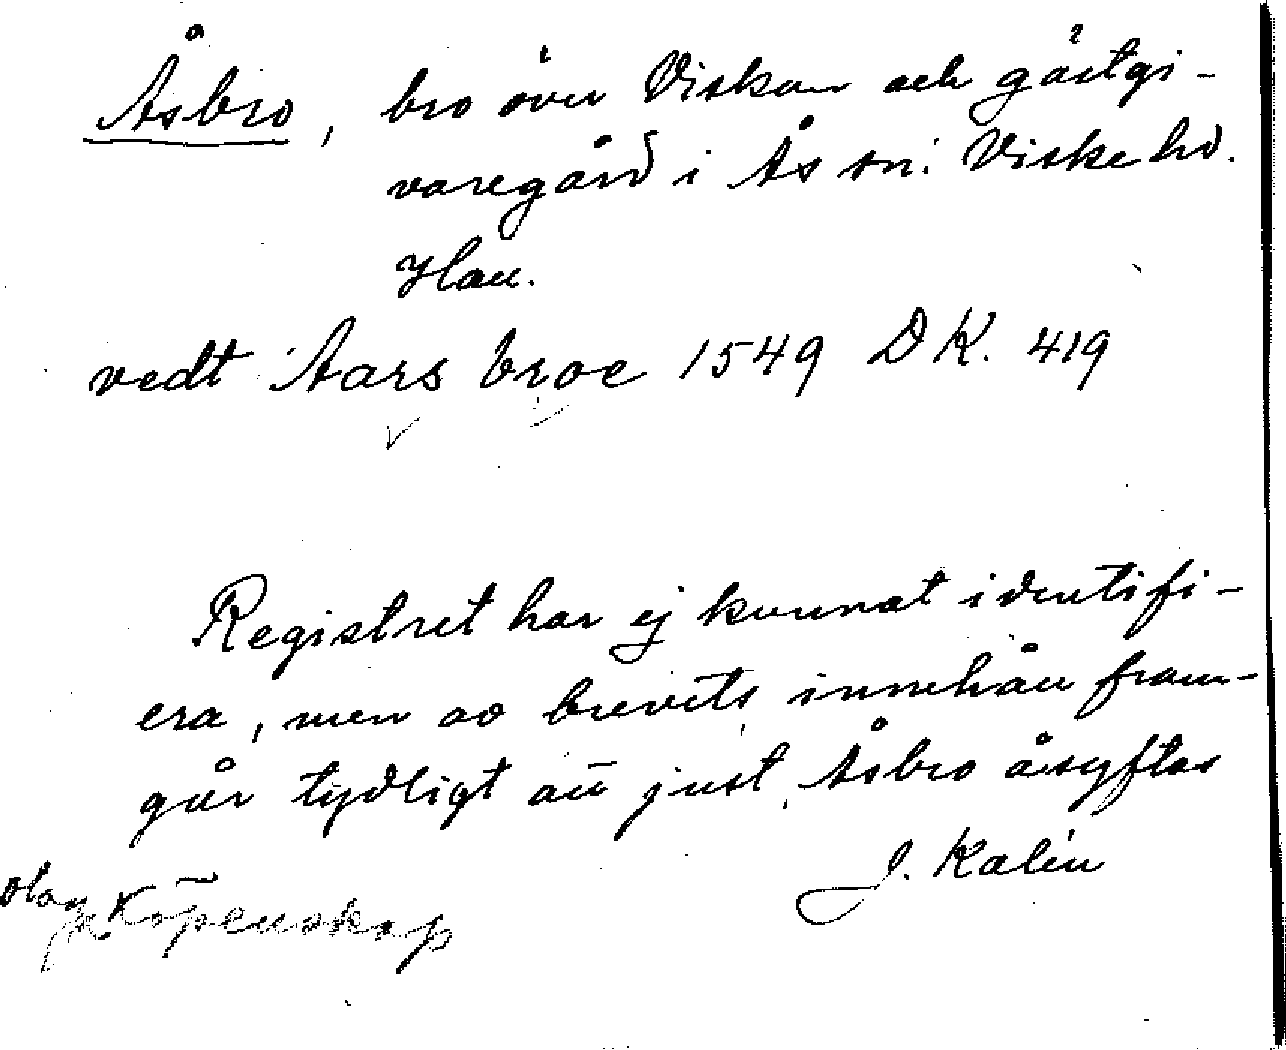 Åsbro, bro över Viskan och gästgi-
varegård i Ås sn. Viske hd.
Hall.
vedt Aars broe 1549 DK. 419
Registret har ej kunnat identifi-
era, men av brevets innehåll fram-
går tydligt att just Åsbro åsyftas
J. Kalén
Olag Köpenskap